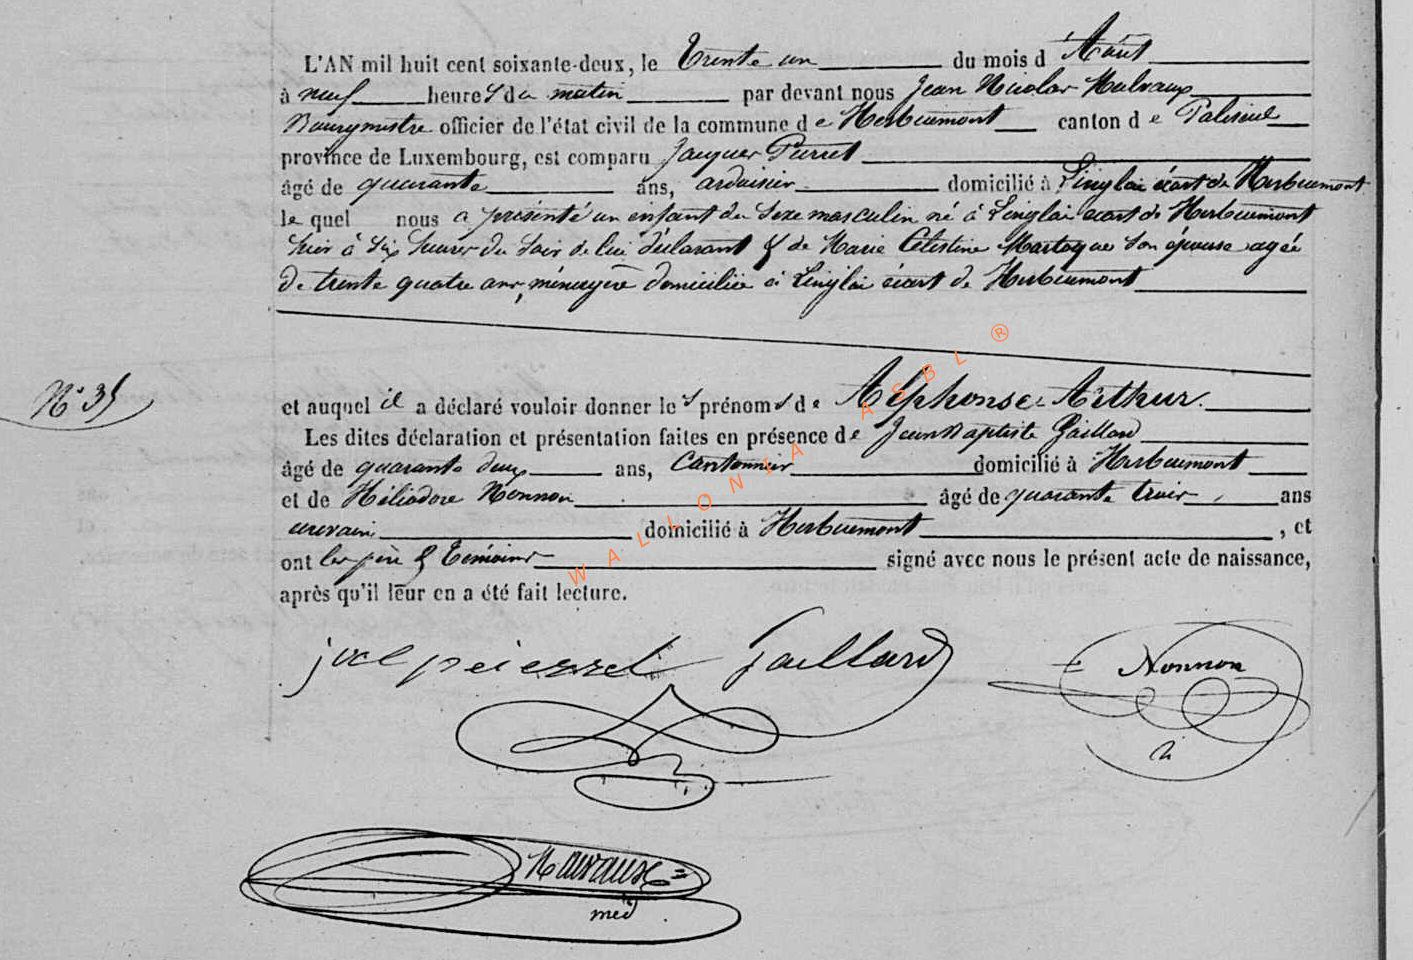 L'AN mil huit cent soixante-deux, le Trente un du mois d'Août
à neuf heures du matin par devant nous Jean Nicolas
Bourgmestre officier de l'état civil de la commune de Herbeumont canton de Paliseul
province de Luxembourg, est comparu Jacques Pierret
âgé de quarante ans, ardoisier domicilié à Linglai écart de Herbeumont
le quel nous a présenté un enfant du sexe masculin né à Linglai écart de Herbeumont
hier à six heures du soir de lui déclarant & de Marie Célestine Martoque son épouse agée
de trente quatre ans, ménagère domiciliée à Linglai écart de Herbeumont
N° 35
et auquel il a déclaré vouloir donner les prénoms de Alphonse Arthur.
Les dites déclaration et présentation faites en présence de Jean Baptiste Gaillard
âgé de quarante deux ans, Cantonnier domicilié à Herbeumont
et de Héliodore Nonnon âgé de quarante trois ans
domicilié à Herbeumont, et
ont les père & témoins signé avec nous le présent acte de naissance,
après qu'il leur en a été fait lecture.
jacl peierrel Gaillard Nonnon
WALLONIA ASBL ®